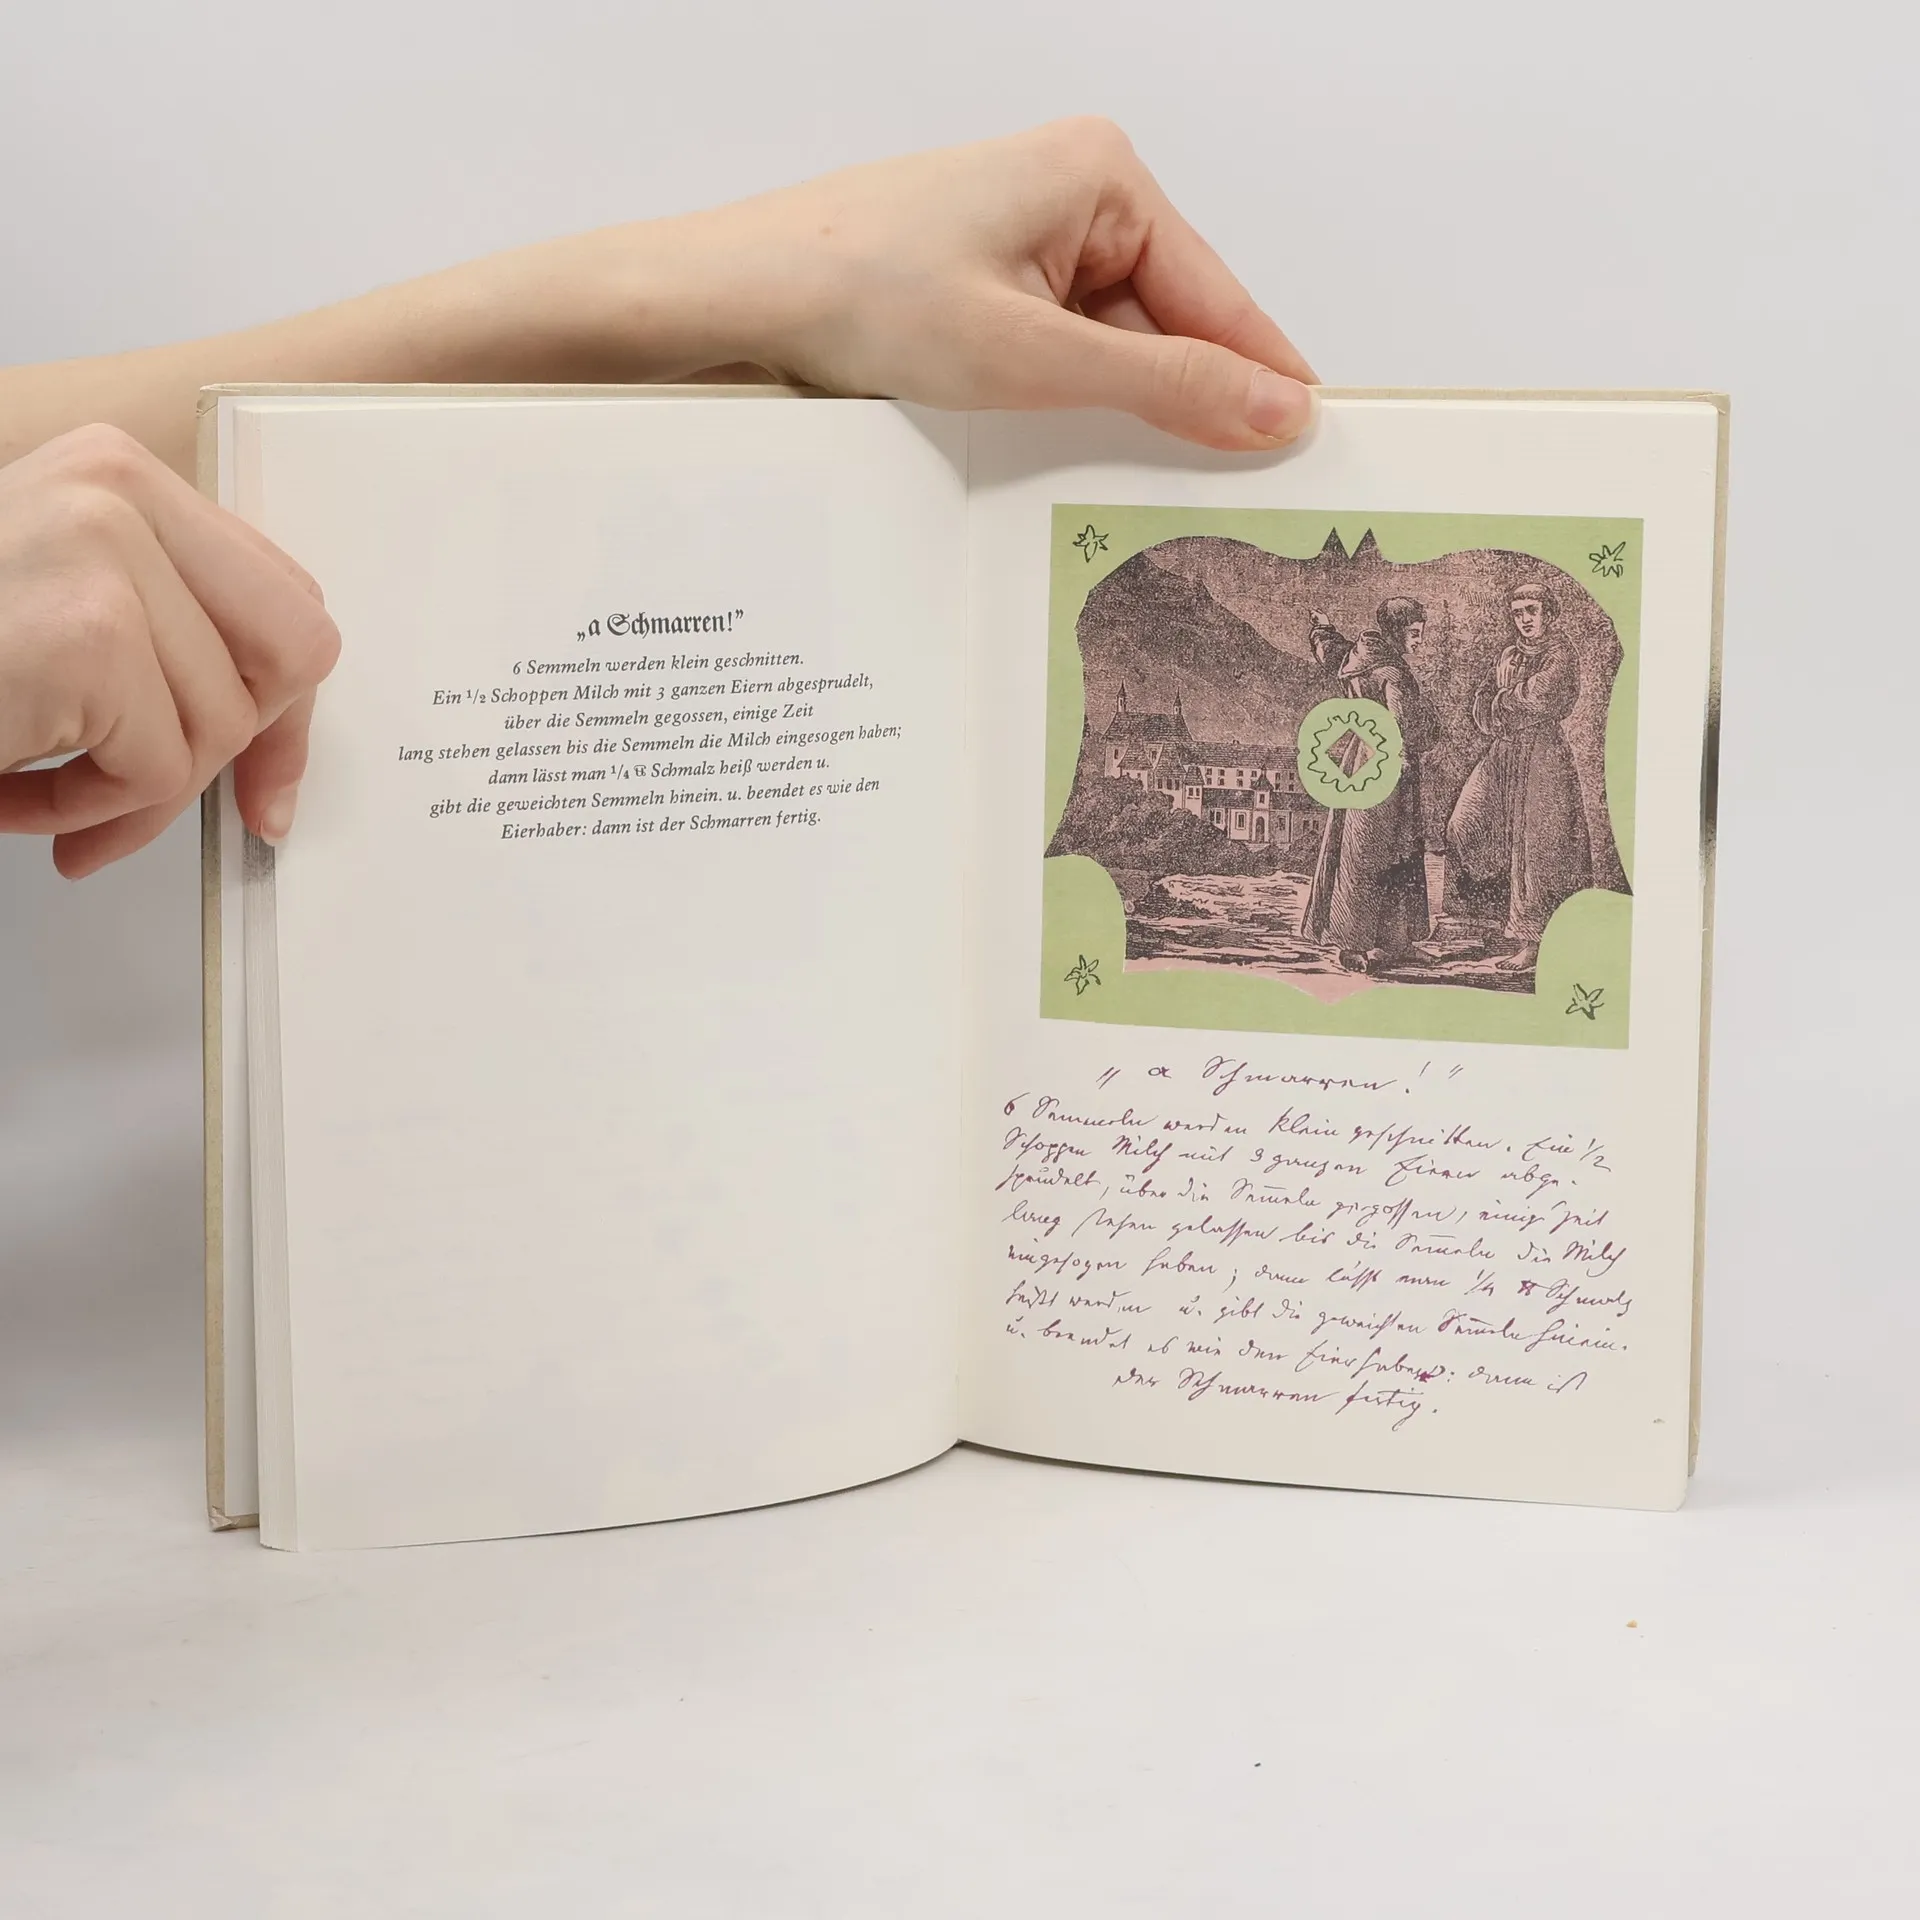 „a Schmarren!”
6 Semmeln werden klein geschnitten.
Ein 1/2 Schoppen Milch mit 3 ganzen Eiern abgesprudelt,
über die Semmeln gegossen, einige Zeit
lang stehen gelassen bis die Semmeln die Milch eingesogen haben;
dann lässt man 1/4 ℔ Schmalz heiß werden u.
gibt die geweichten Semmeln hinein. u. beendet es wie den
Eierhaber: dann ist der Schmarren fertig.
„a Schmarren!”
6 Semmeln werden klein geschnitten. Ein 1/2
Schoppen Milch mit 3 ganzen Eiern abge-
sprudelt, über die Sem̅eln gegossen, einige Zeit
lang stehen gelassen bis die Sem̅eln die Milch
eingesogen haben; dann lässt man 1/4 ℔ Schmalz
heißt werden u. gibt die geweichten Sem̅eln hinein.
u. beendet es wie den Eierhaber: dann ist
der Schmarren fertig.